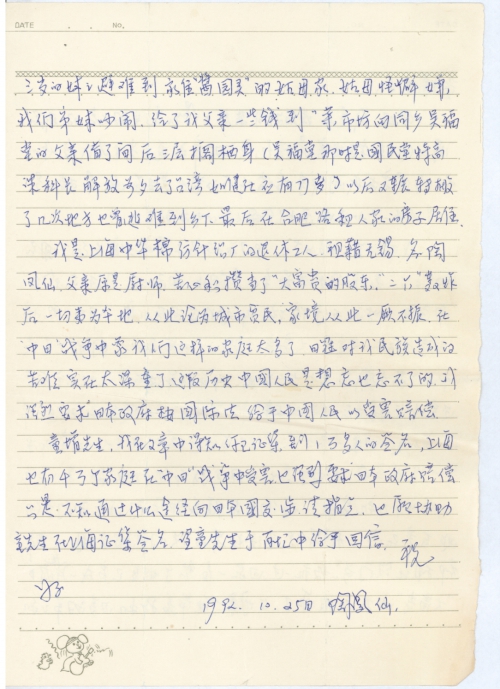 DATE . . NO.
三岁的妹妹避难到家住"万国"的姑母家，姑母怪癖，嫌
我们弟妹吵闹，给了我父亲一些钱到"菜市场向同乡吴福
的父亲借了间后三层搁栖身（吴福 那时是国民党特高
课科长 解放前夕去了台湾 如健在应有 多）以后又 转搬
了几次地方也曾避难到乡下 最后在合肥路租人家的房子居住
我是上海中华棉纺针织厂的退休工人，祖籍无锡，名陶
凤仙，父亲原是厨师，苦心积攒当了"大富贵的股东，" 轰炸
后一切夷为平地，从此沦为城市贫民，家境从此一厥不振，在
中日"战争中象我们这样的家庭太多了，日 对我民族造成的
苦难实在太深重了这段历史中国人民是想忘也忘不了的，我
强烈要求日本政府按国际法给于中国人民以受害赔偿
童增先生，我在文章中得知你已征集到1万多人的签名，上海
也有千万个家庭在中日"战争中受害也强烈要求日本政府赔偿
只是不知通过什么途径向日本国交涉请指点，也愿协助
童先生在上海征集签名，望童先生于百忙中给于回信，祝
好
1992.10.25日 陶凤仙